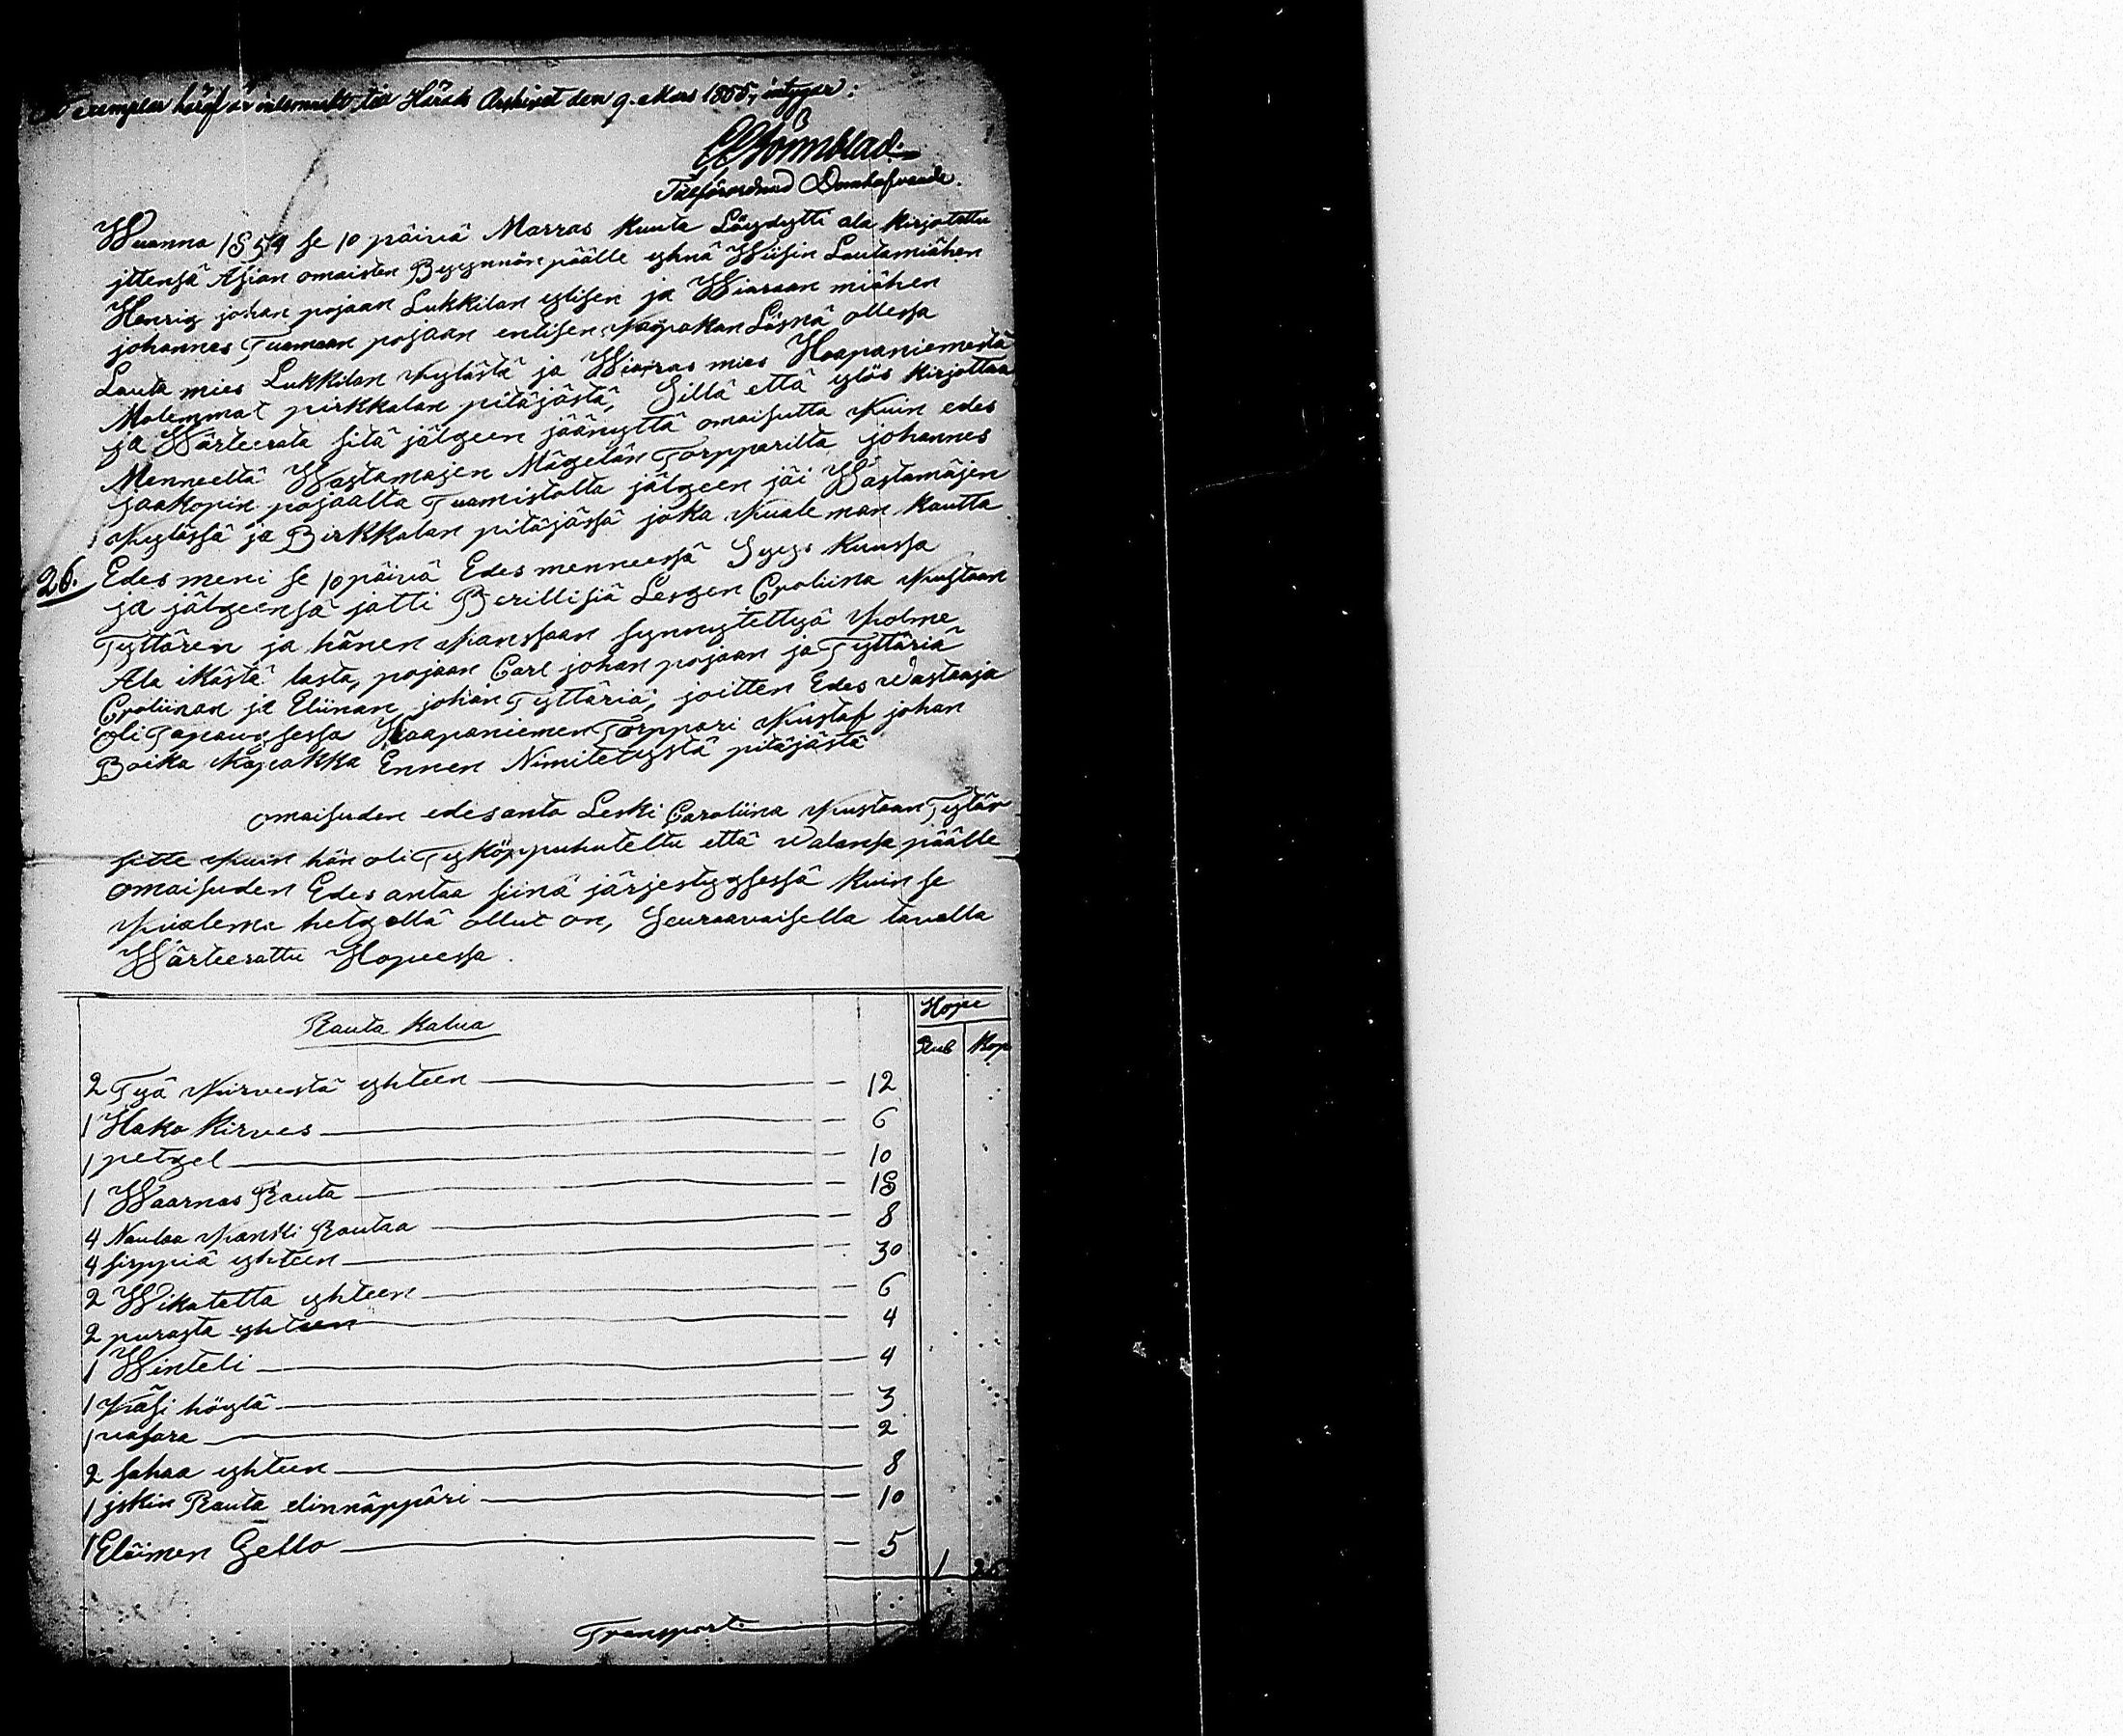 exemplar häraf är inlemnadt till Härads Archivet den 9. Mars 1855, intygar:
Tillförordnad Domhafvande.
Wuanna 1854 se 10 päiwä Marras kuuta Löyydytti ala kirjotettu
jttensä Asian omaisten Pyynnön päälle yhnä Wiisin Lautamiähen
Henriq johan pojaan Lukkilan ylisen ja Wiaraan miähen
johannes Tuamaan pojaan entisen Näpäkän Läsnä ollessa
Lauta mies Lukkilan Kylästä ja Wiaras mies Haapaniemestä
Molemmat pirkkalan pitäjästä, Sillä että ylös kirjottaa
ja Wärteerata sitä jälqeen jäänyttä omaisutta Kuin edes
Menneeltä Wastamäjen Mäqelän Torpparilta johannes
jaakopin pojaalta Tuamistolta jälqeen jäi Wastamäjen
Kylässä ja Birkkalan pitäjässä joka Kualeman kautta
26. Edes meni se 10 päiwä Edes menneessä Syys kuussa
ja jälqeensä jätti Perillisiä Lesqen Croliina Kustaan
Tyttären ja hänen Kanssaan synnytettyä Kolme
Ala ikästä lasta, pojaan Carl johan pojaan ja Tyttäriä
Croliinan ja Eliinan johan Tyttäriä, joitten Edes wastaaja
Oli Tapauqsessa Haapaniemen Torppari Kustaf johan
Boika Näpäkkä Ennen Nimitetystä pitäjästä
omaisuden edesanto Leski Caroliina Kustaan Tytär
sitte Kuin hän oli Tyköppuhuteltu että walansa päälle
omaisuden Edes antaa siinä järjestyqsessä kuin se
Kualema hetqellä ollut on, Seuraavaisella tavalla
Wärteerattu Hopeessa.
Hope
Rauta kalua
Rub Kop
2 Työ Kirvestä yhteen — 12
1 Hako kirves — 6
1 petqel — 10
1 Waarnas Rauta — 18
4 Naulaa Kanki Rautaa — 8
4 sirppiä yhteen — 30
2 Wikatetta yhteen — 6
2 purasta yhteen — 4
1 Winteli — 4
1 Käsi höylä — 3
1 vasara — 2
2 sahaa yhteen — 8
1 jskin Rauta elinnäppäri — 10
1 Eläimen Gello — 5
1 26
Transport